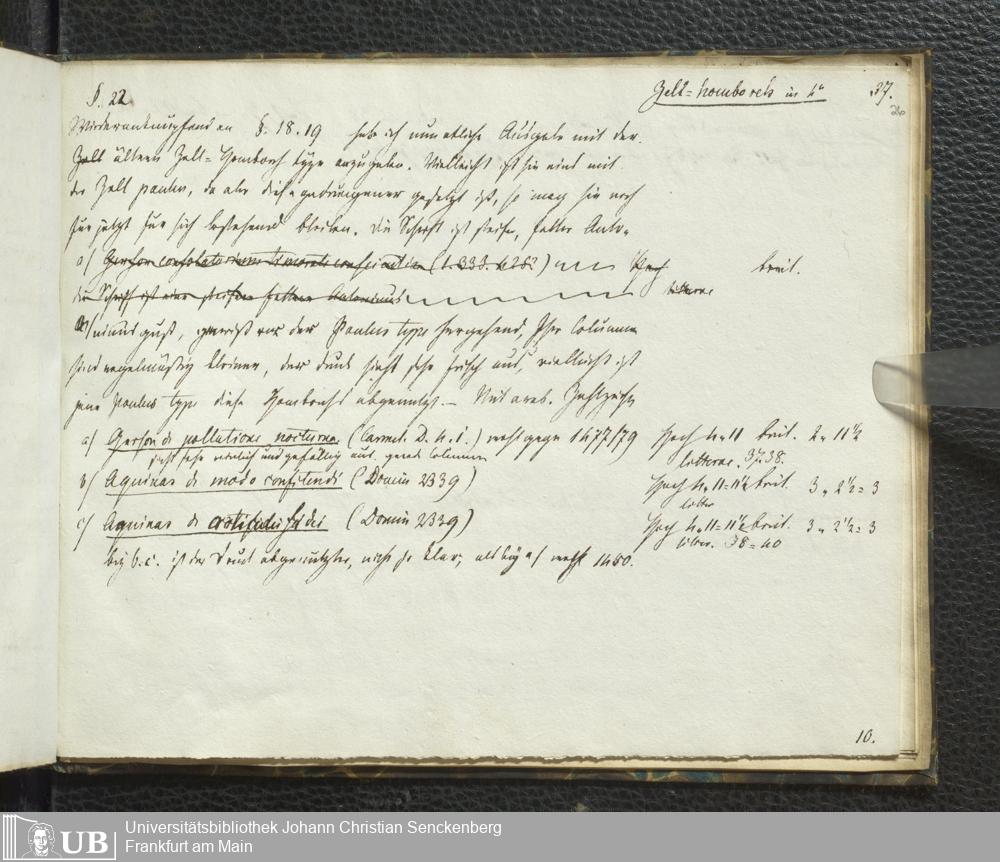 §. 22. Zell=homborch in 4° 37.
Wiederanknüpfend an §. 18. 19 habe ich nun etliche Ausgabe mit der
Zell ältern Zell=Homborch type anzugeben. Vielleicht ist sie eins mit
der Zell paulus, da aber diese gedrungener gesetzt ist, so mag sie noch
für jetzt für sich bestehend bleiben. Die Schrift ist steife, fette Anto=
a) Gerson (t. 333. 4262) Hoch breit.
die Schrift ist eine steife fette Antonius litterae
minus guß, der Paulus type hergehend, Ihre Columnen
sind regelmäßig kleiner, der druck sieht sehr frisch aus, vielleicht ist
jene Paulus type diese Homborchs abgenutzt. — Mit arab.
a) Gerson de pollutione nocturna (Carmel. D. 4. i.) wohl gegen 1477/79 Hoch 4=11 breit. 2=11½
sieht sehr niedlich und gefällig aus. gerade Columnen litterae. 37.38.
b) Aquinas de modo confitendi (Domin 2339) Hoch 4=11=11½ breit. 3=2½=3
litter
c) Aquinas de articulis fidei (Domin 2339) Hoch 4=11=11½ breit. 3=2½=3
litter. 38=40
bey b. c. ist der Druck abgenutzter, nicht so klar, als bey a) wohl 1480.
10.
UB Universitätsbibliothek Johann Christian Senckenberg
Frankfurt am Main